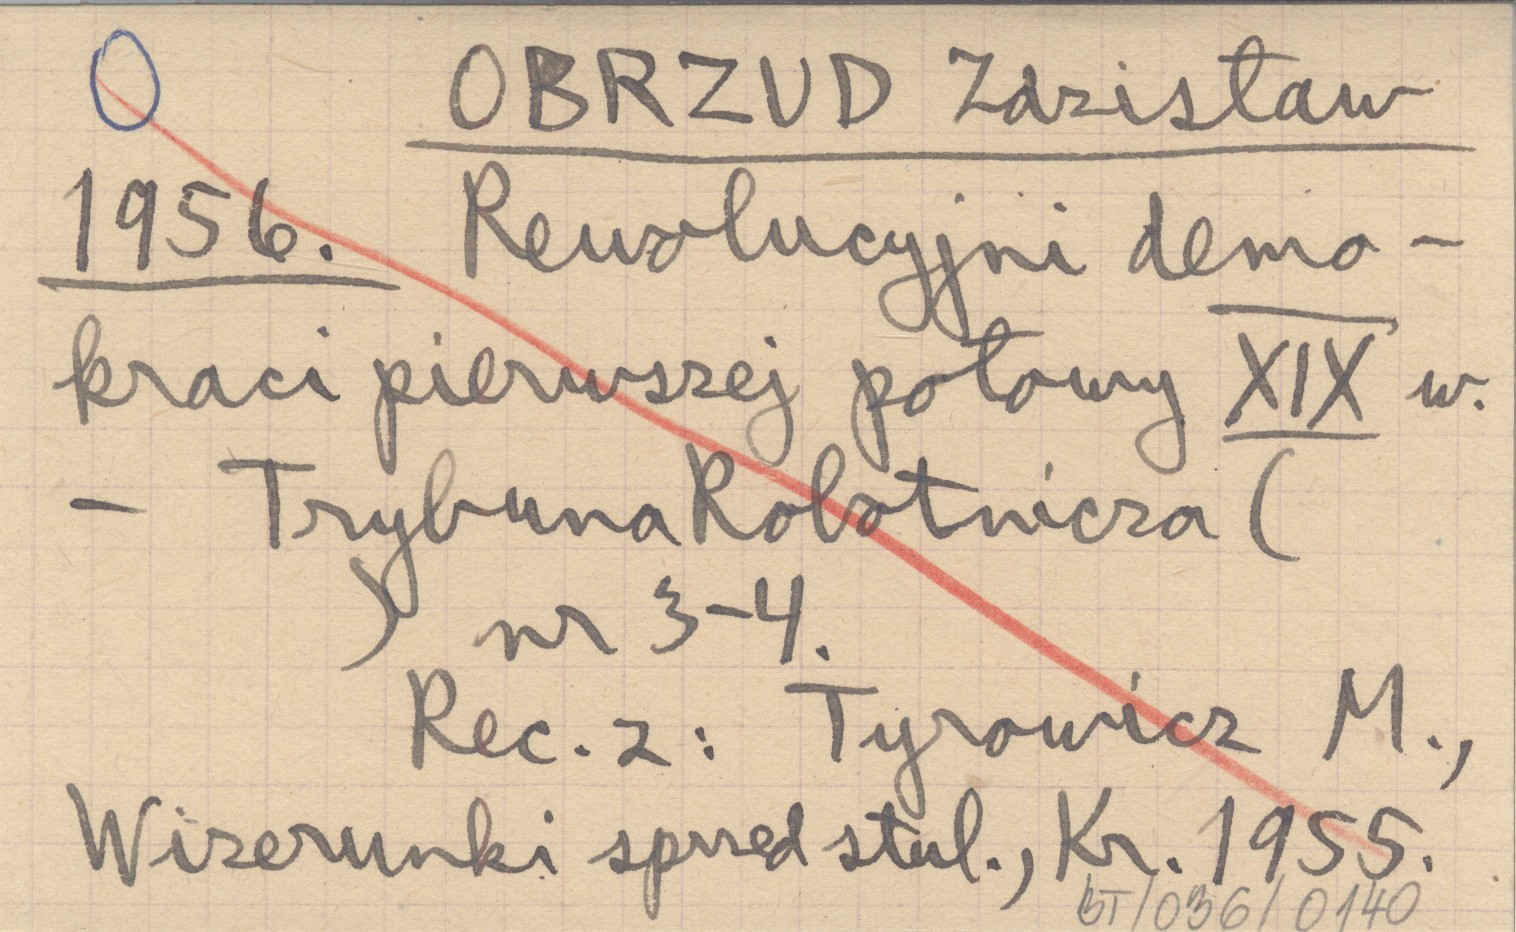 O OBRZUD Zdzisław
1956. Rewolucyjni demo-
kraci pierwszej połowy XIX w.
- Trybuna Robotnicza (
) nr 3-4.
Rec. z: Tyrowicz M.,
Wizerunki sprzed stul., Kr. 1955.
BT/036/0140